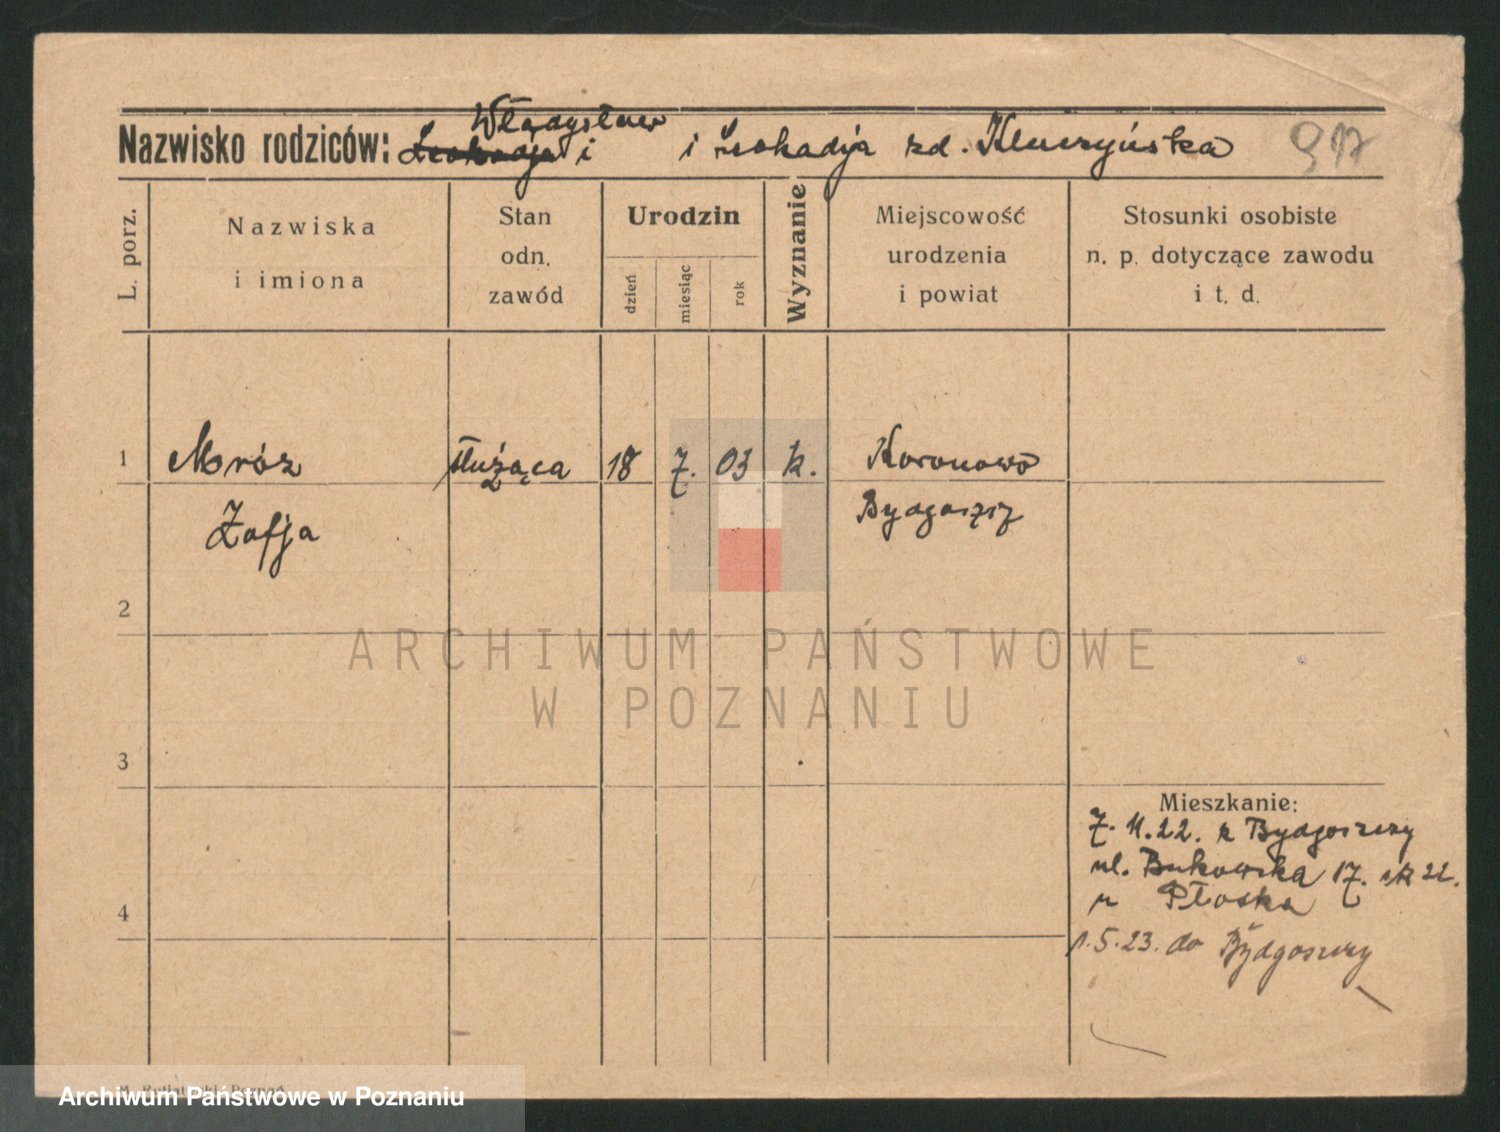 Władysław
Nazwisko rodziców: Leokadja i i Leokadja zd. Kluczyńska 917
L. porz.
Nazwiska
i imiona
Stan
odn.
zawód
Urodzin
dzień
miesiąc
rok
Wyznanie
Miejscowość
urodzenia
i powiat
Stosunki osobiste
n. p. dotyczące zawodu
i t. d.
1 Mróz służąca 18 7. 03 k. Koronowo
Zofja Bydgoszcz
2
ARCHIWUM PAŃSTWOWE
W POZNANIU
3
Mieszkanie:
7. 11. 22. z Bydgoszczy
ul. Bukowska 17. 22.
u Płoska
4
1. 5. 23. do Bydgoszczy
Archiwum Państwowe w Poznaniu